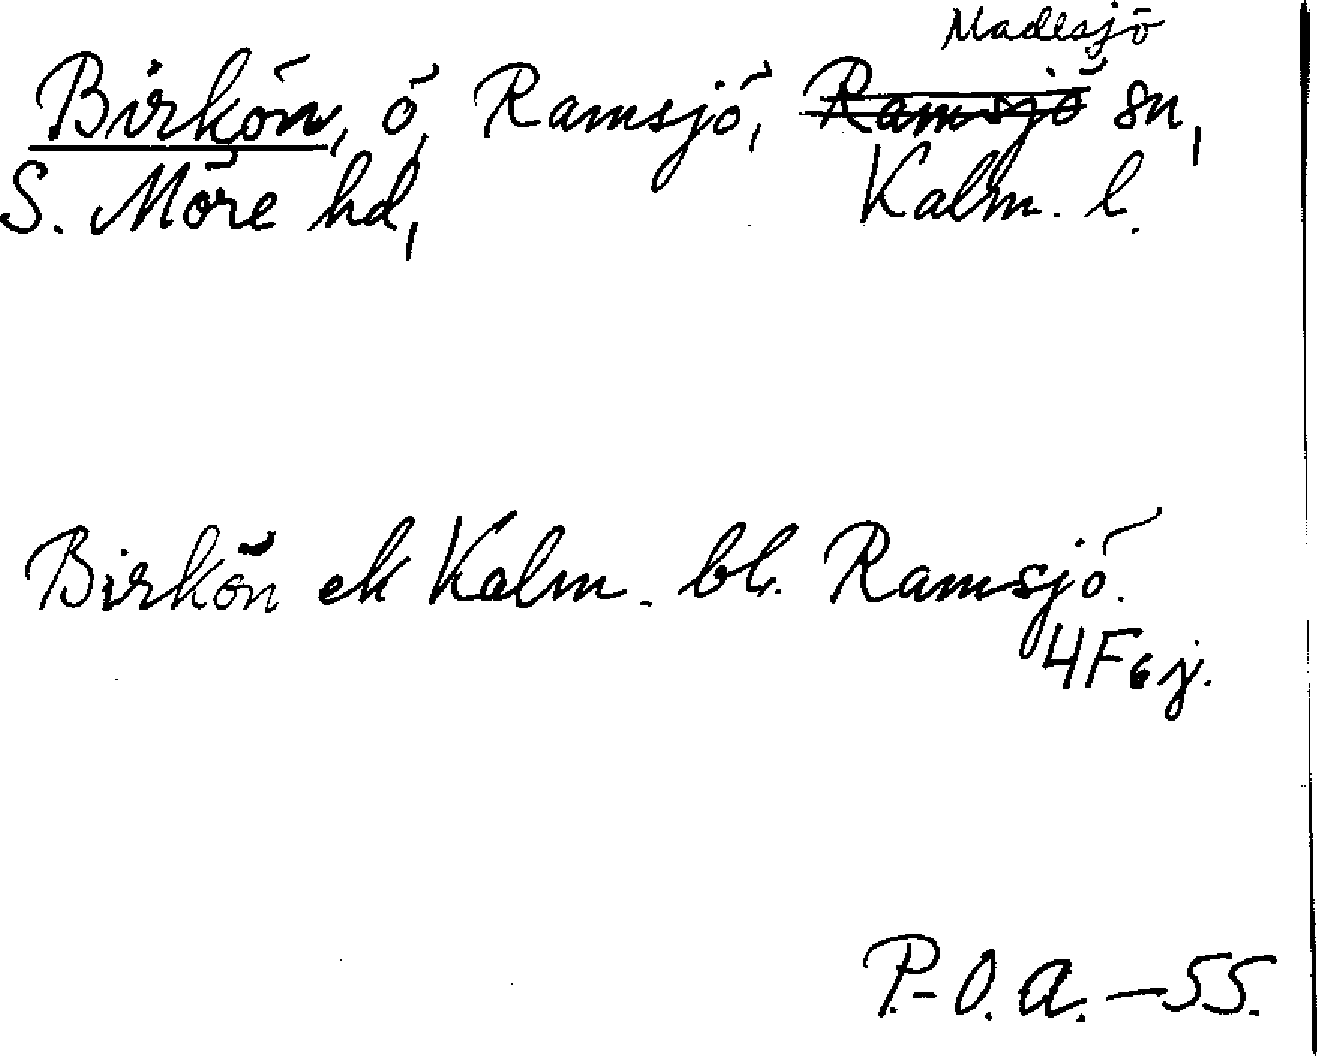 Madesjö
Birkön, ö, Ramsjö, Ramsjö sn,
S. Möre hd, Kalm. l.
Birkön ek Kalm. bl. Ramsjö.
4F6j.
P.-O. A. – 55.